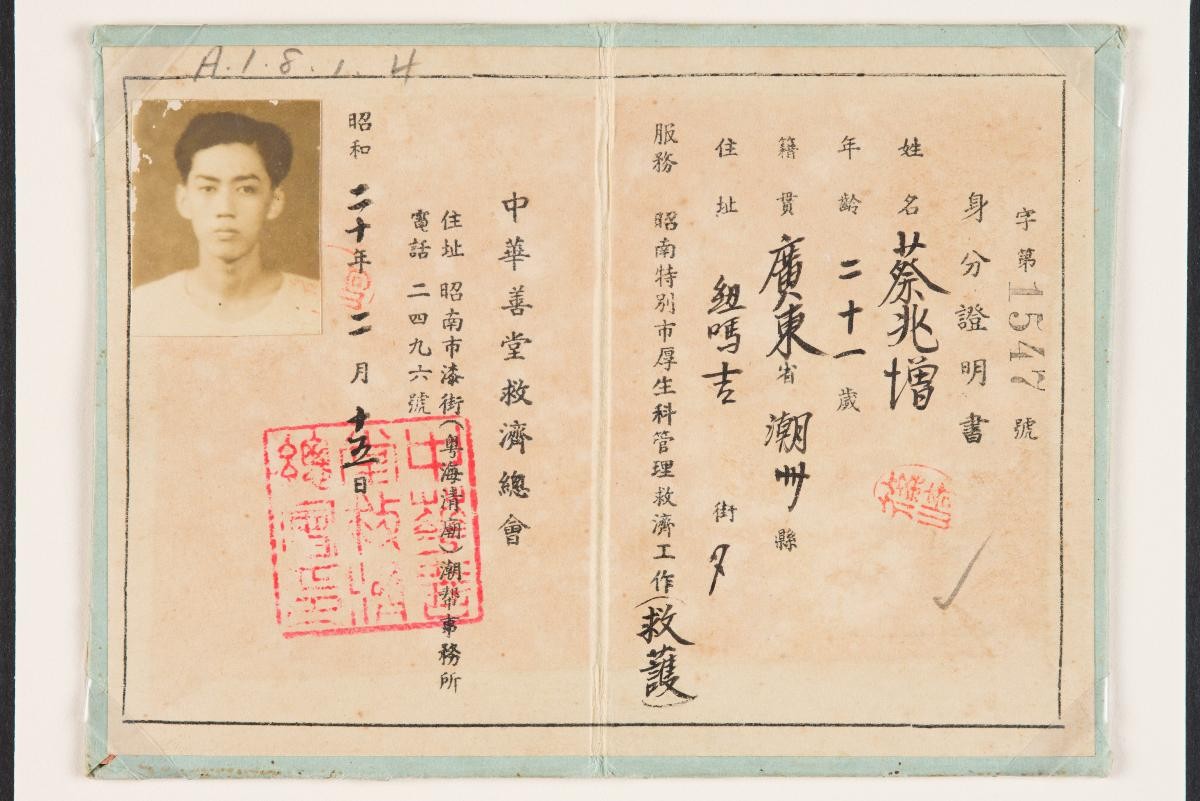 A.1.8.1.4
字第1547號
身分證明書
姓名 蔡兆增
年齡 二十一歲
籍貫 廣東省 潮州縣
住址 紐嗎吉 街
服務 昭南特別市厚生科管理救濟工作（救護）
中華善堂救濟總會
住址 昭南市漆街（粤海清廟）潮幫事務所
電話 二四九六號
昭和二十年二月十五日